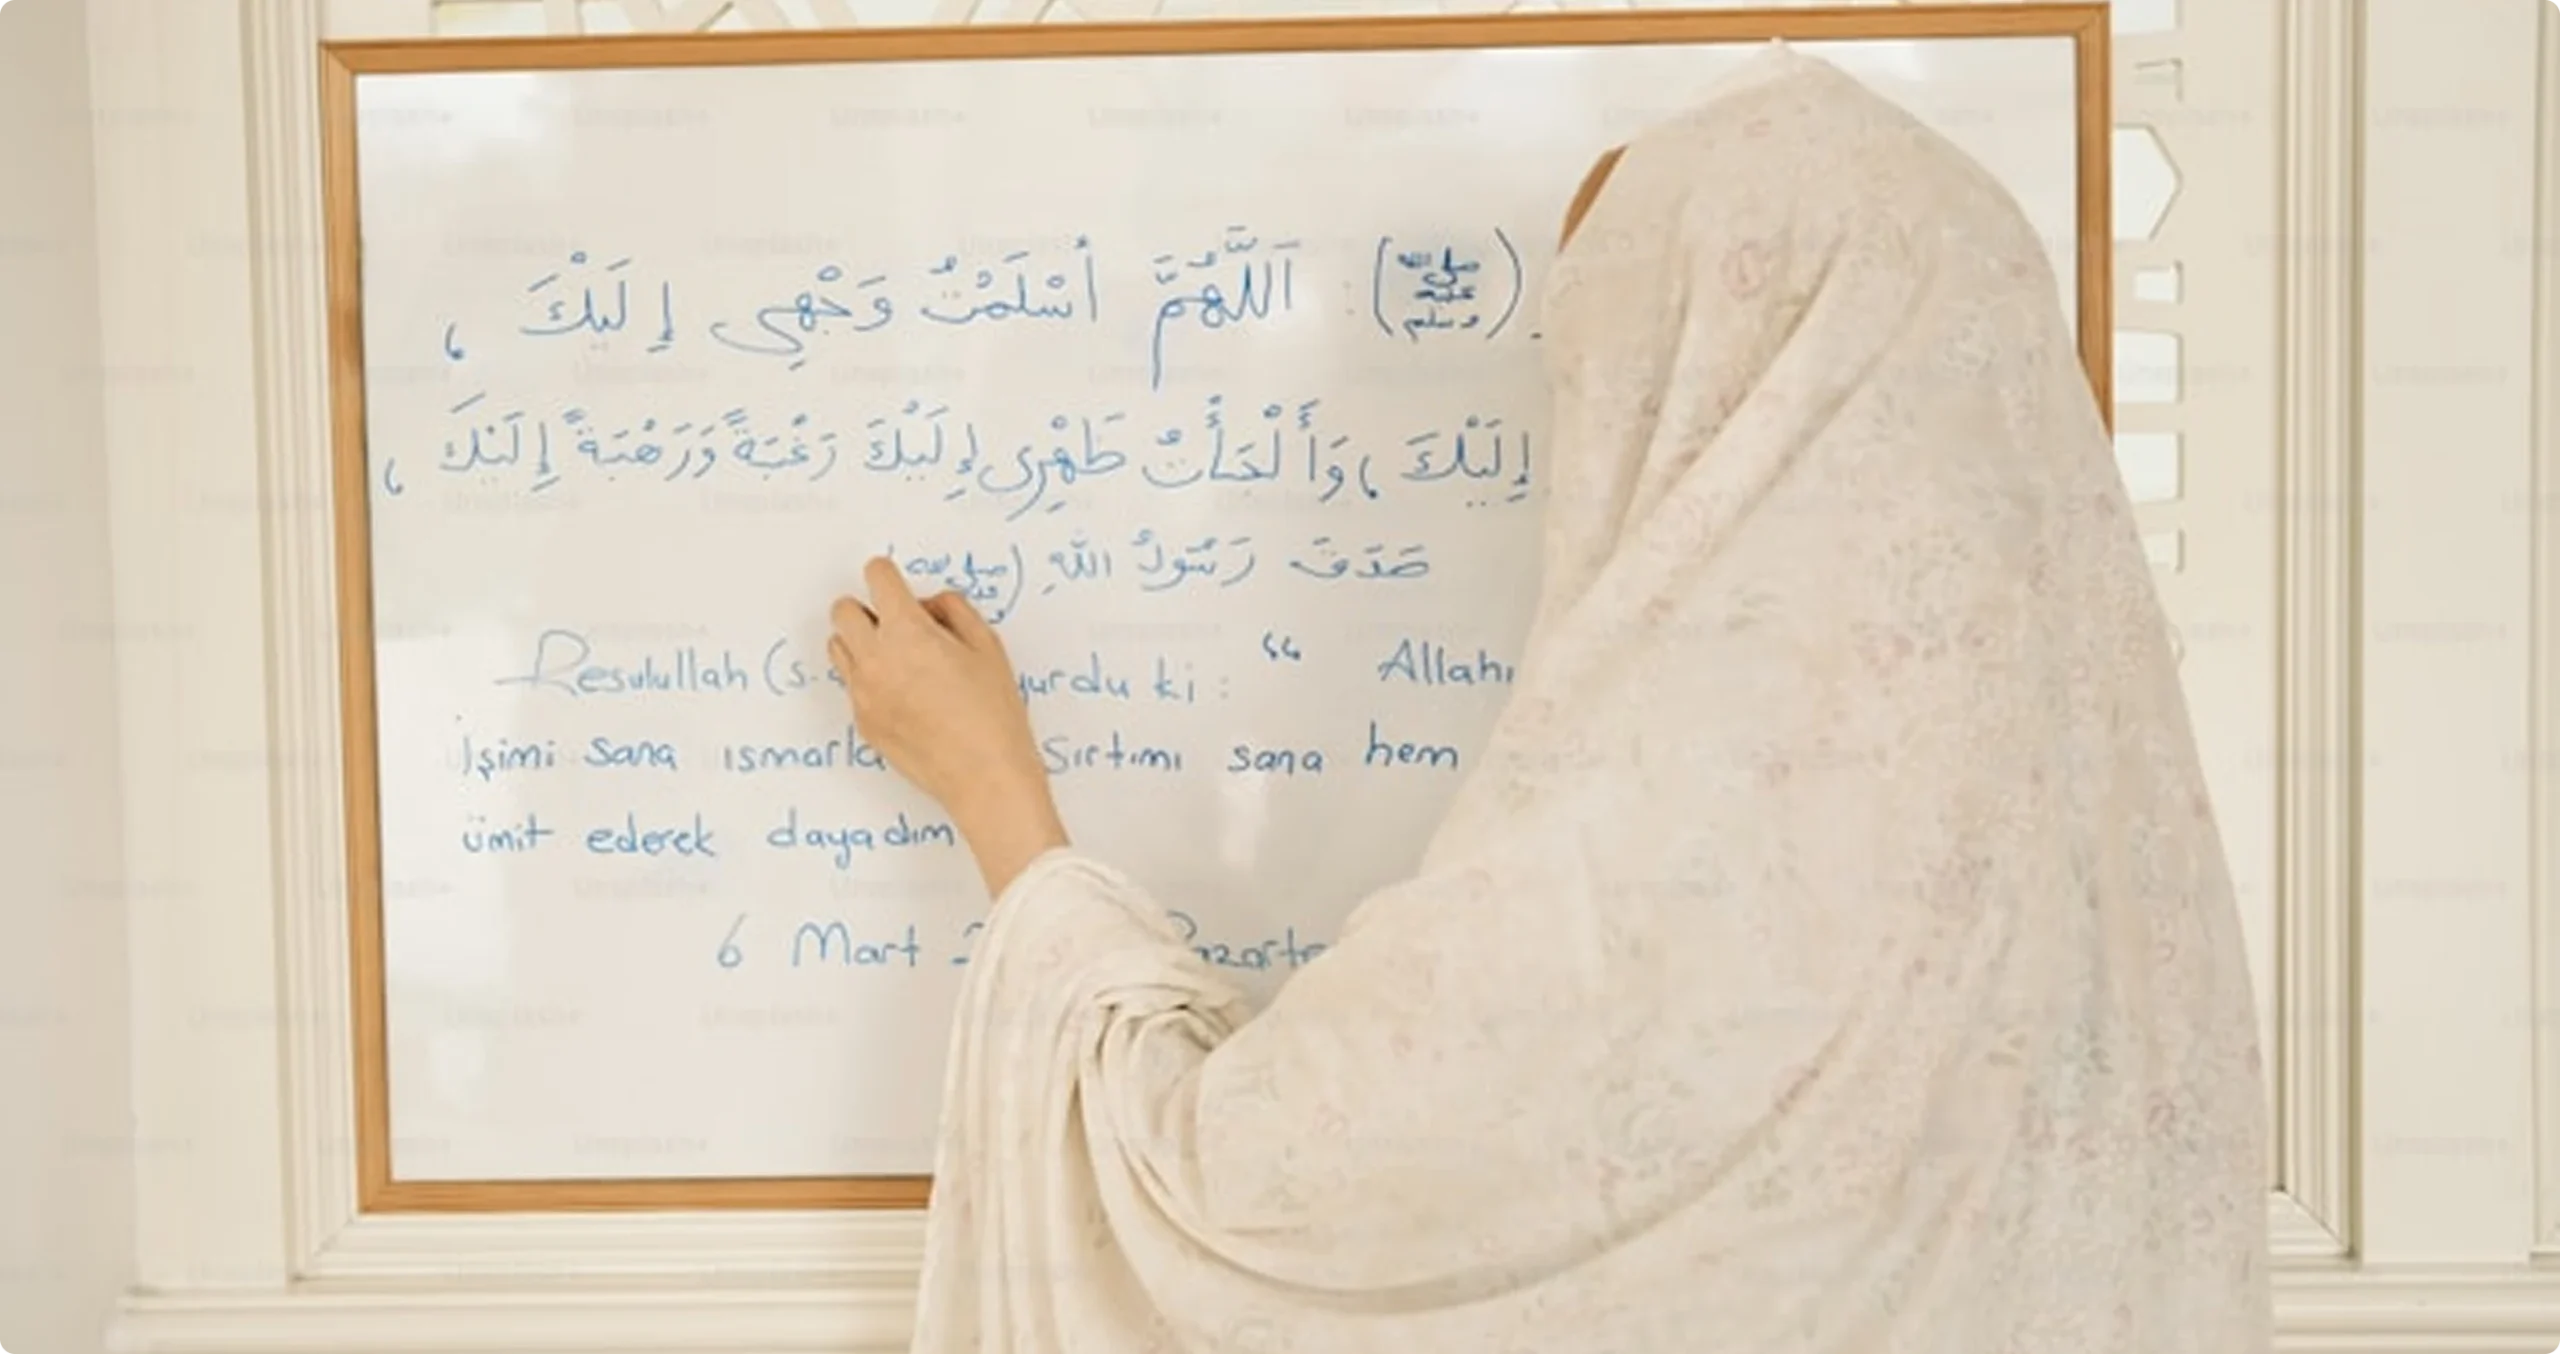 (صلى الله عليه وسلم): اَللَّهُمَّ أَسْلَمْتُ وَجْهِي إِلَيْكَ ،
إِلَيْكَ ، وَأَلْجَأْتُ ظَهْرِي إِلَيْكَ رَغْبَةً وَرَهْبَةً إِلَيْكَ ،
صَدَقَ رَسُولُ اللهِ (صلى الله
Resulullah (s.a yurdu ki : “ Allahı
İşimi sana ısmarla Sırtımı sana hem
ümit ederek dayadım
6 Mart 2 Pazarte